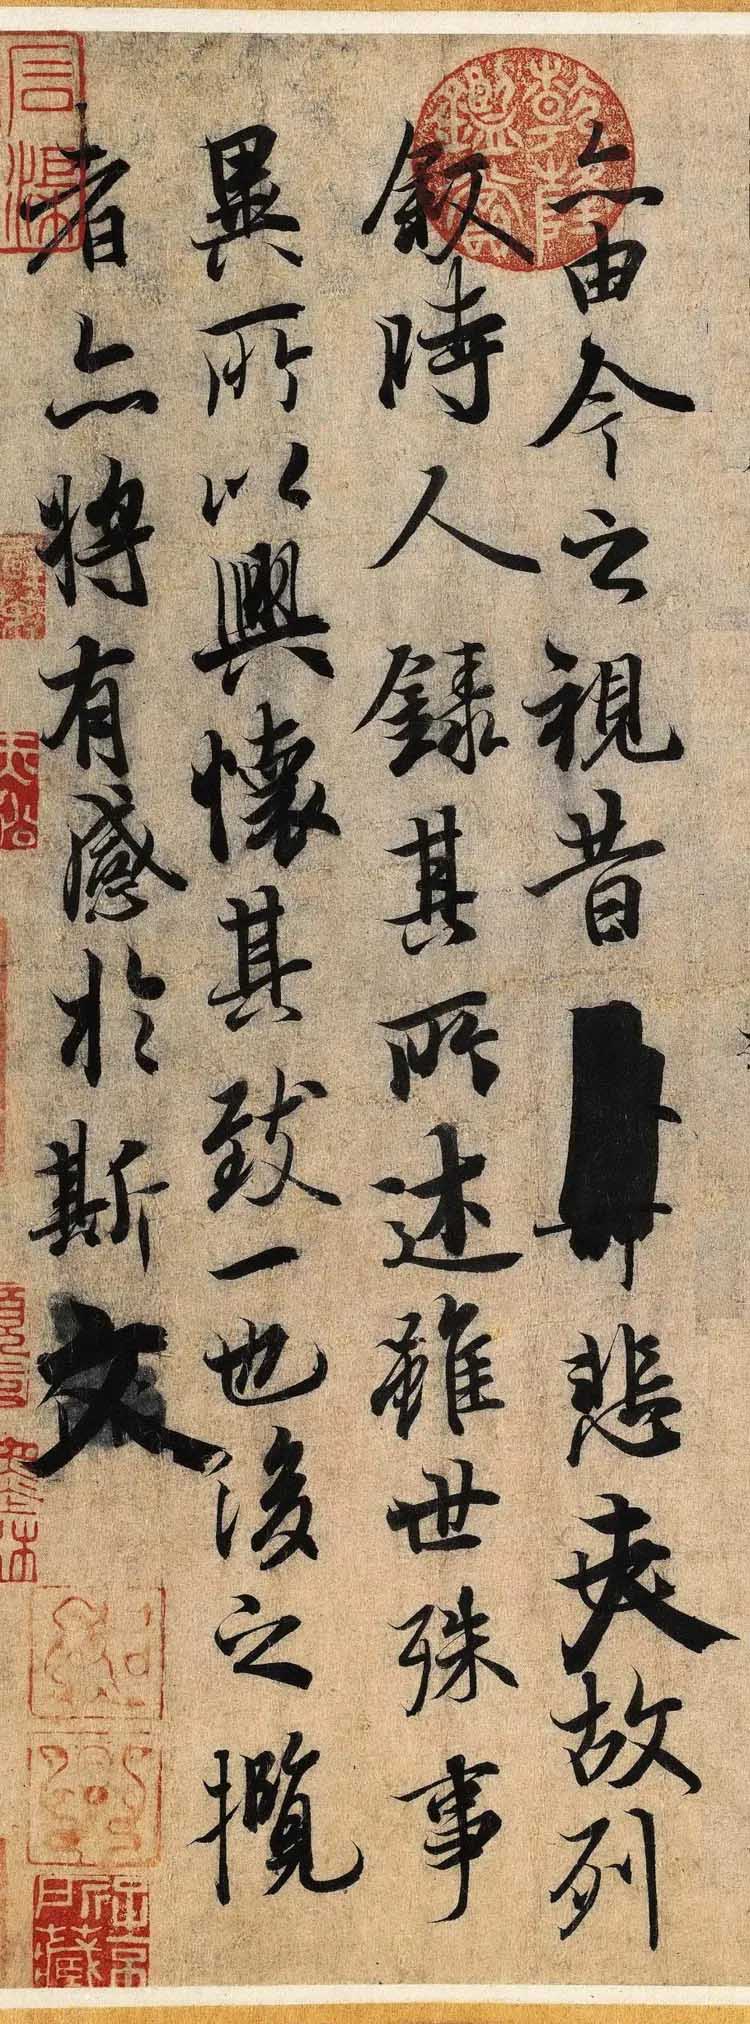 亦由今之視昔悲夫故列
敘時人錄其所述雖世殊事
異所以興懷其致一也後之攬
者亦將有感於斯文
乾隆鑑賞